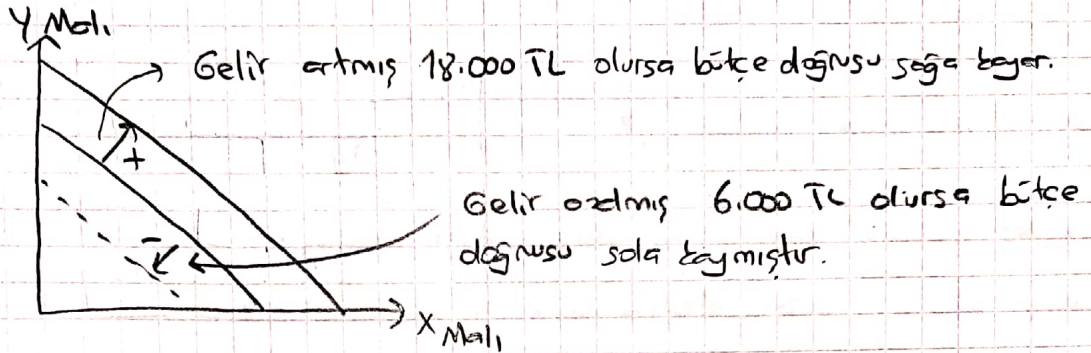 Y Malı
Gelir artmış 18.000 TL olursa bütçe doğrusu sağa kayar.
+
Gelir azalmış 6.000 TL olursa bütçe
doğrusu sola kaymıştır.
-
X Malı